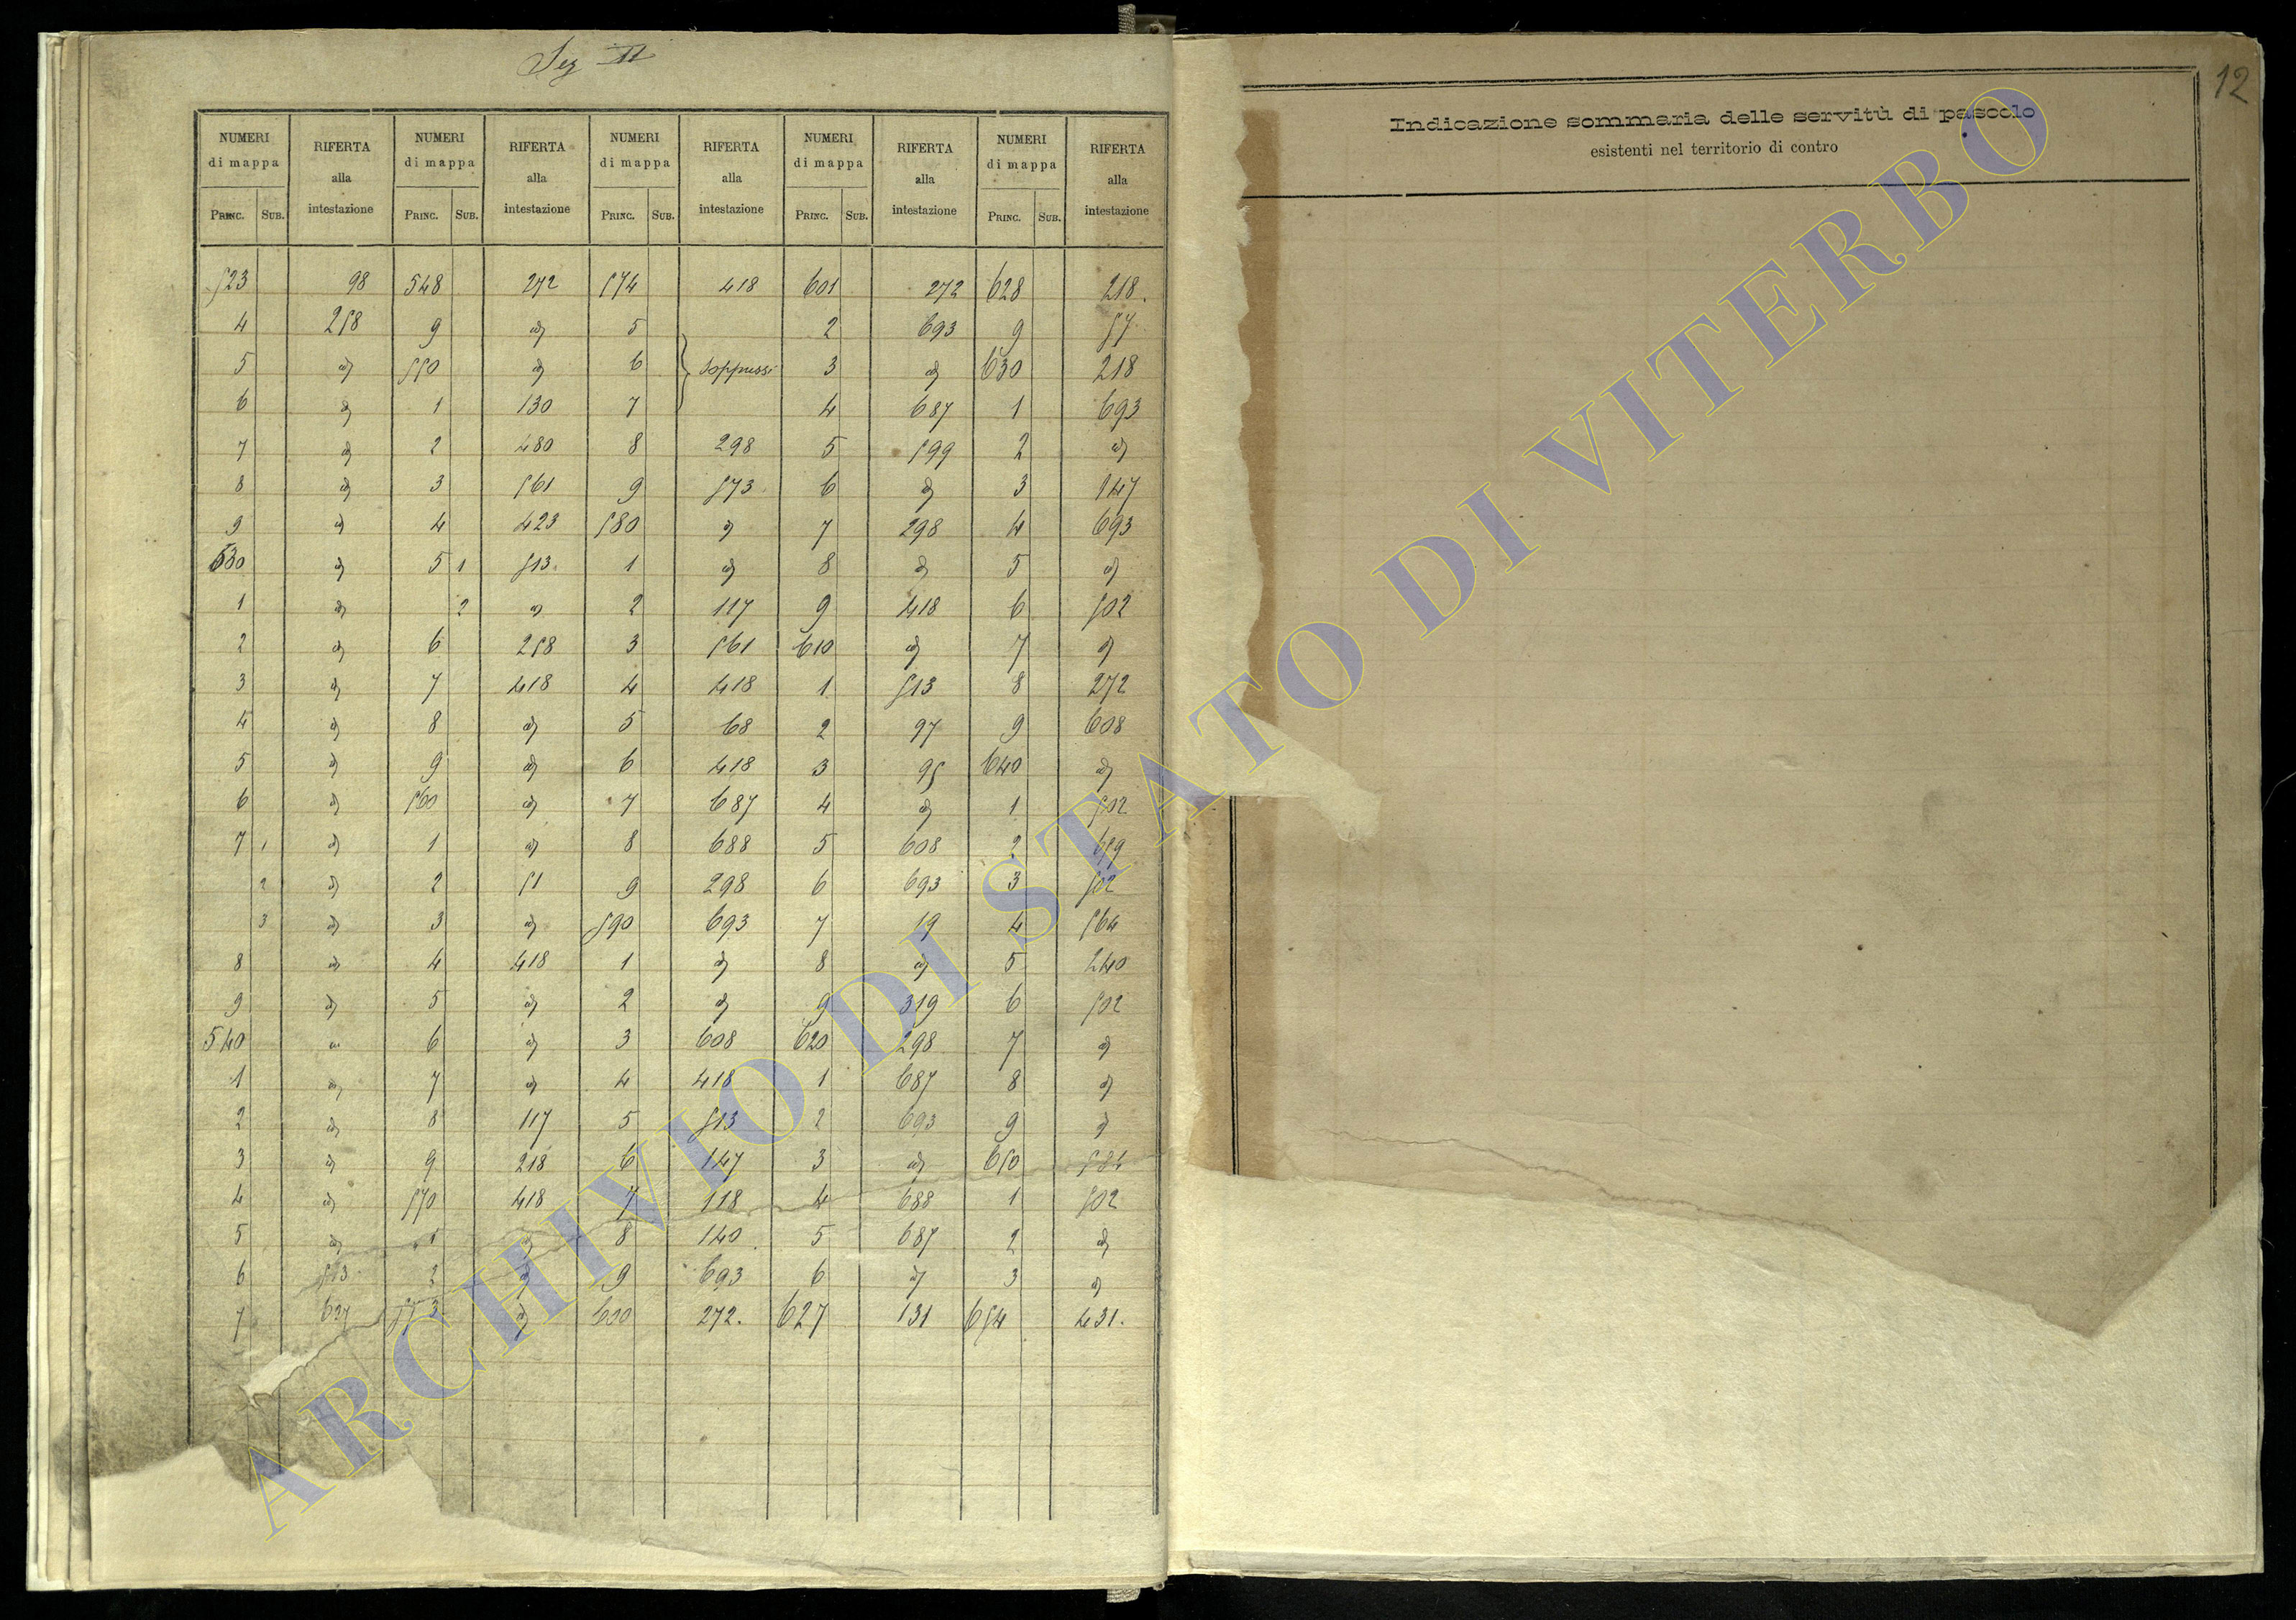 Sez II
NUMERI di mappa RIFERTA alla intestazione NUMERI di mappa RIFERTA alla intestazione NUMERI di mappa RIFERTA alla intestazione NUMERI di mappa RIFERTA alla intestazione NUMERI di mappa RIFERTA alla intestazione
PRINC. SUB. PRINC. SUB. PRINC. SUB. PRINC. SUB. PRINC. SUB.
523 98 548 272 574 418 601 272 628 218.
4 258 9 id 5 2 693 9 57
5 id 550 id 6 Soppressi 3 id 630 218
6 id 1 130 7 4 687 1 693
7 id 2 480 8 298 5 599 2 id
8 id 3 561 9 573 6 id 3 147
9 id 4 423 580 id 7 298 4 693
530 id 5 1 513 1 id 8 id 5 id
1 id 2 id 2 117 9 418 6 502
2 id 6 258 3 561 610 id 7 id
3 id 7 418 4 418 1 513 8 272
4 id 8 id 5 68 2 97 9 608
5 id 9 id 6 418 3 95 640 id
6 id 560 id 7 687 4 id 1 502
7 1 id 1 id 8 688 5 608 2 659
2 id 2 51 9 298 6 693 3 502
3 id 3 id 590 693 7 19 4 564
8 id 4 418 1 id 8 id 5 240
9 id 5 id 2 id 9 319 6 502
540 id 6 id 3 608 620 298 7 id
1 id 7 id 4 418 1 687 8 id
2 id 8 117 5 513 2 693 9 id
3 id 9 218 6 147 3 id 650
4 id 570 418 7 118 4 688 1 502
5 id 1 id 8 140 5 687 2 id
6 513 2 id 9 693 6 id 3 id
7 627 573 id 600 272. 627 131 654 431.
12
Indicazione sommaria delle servitù di pascolo
esistenti nel territorio di contro
ARCHIVIO DI STATO DI VITERBO